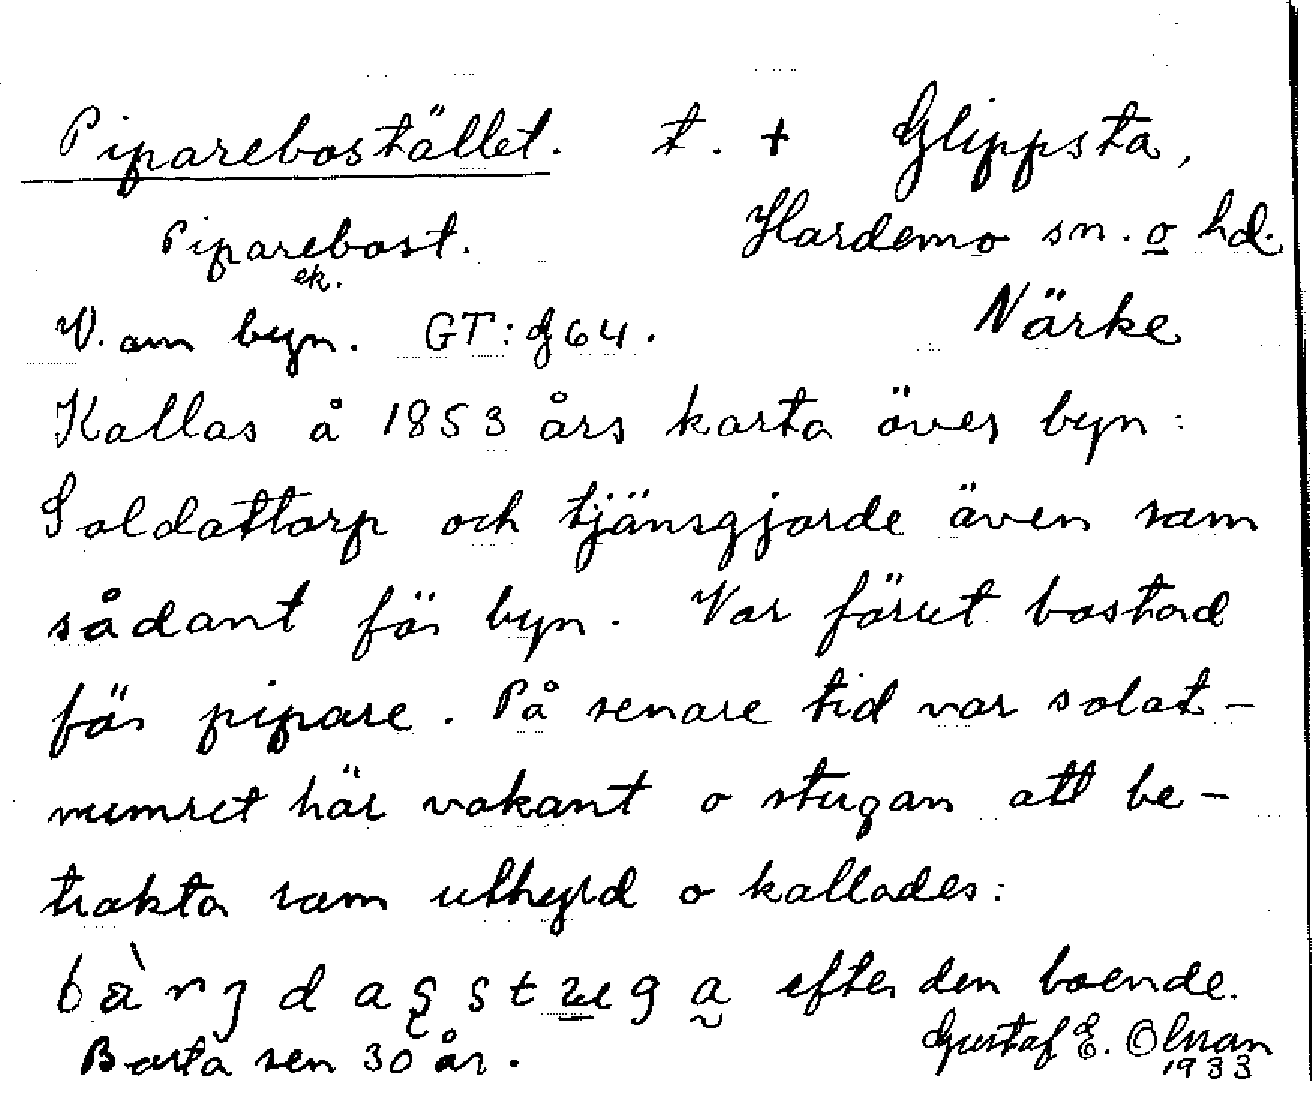 Piparebostället. t. + Glippsta,
Piparebost. Hardemo sn. o hd.
ek.
V. om byn. GT: g 64. Närke
Kallas å 1853 års karta över byn:
Soldattorp och tjänsgjorde även som
sådant för byn. Var förut bostad
för pipare. På senare tid var solat-
numret här vakant o stugan att be-
trakta som uthyrd o kallades:
efter den boende.
Borta sen 30 år. Gustaf E. Olsson
1933